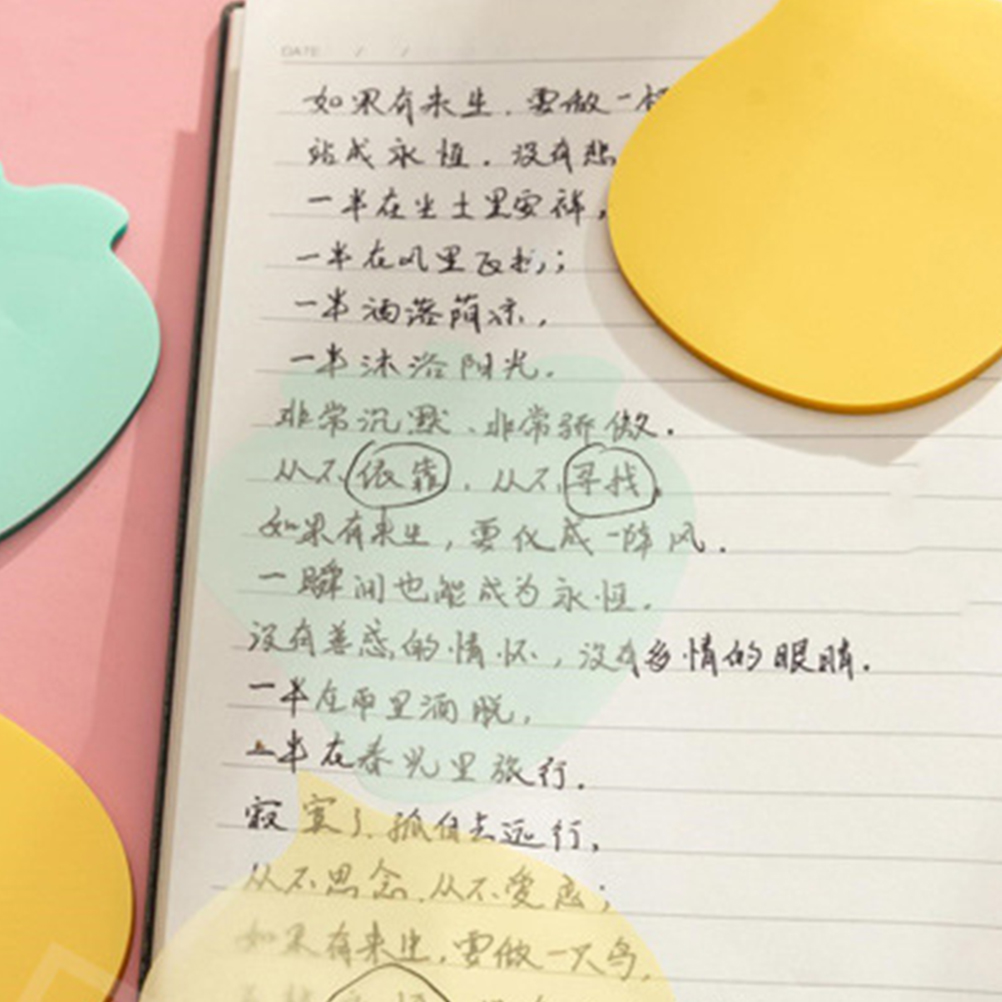 DATE / /
如果有来生,要做一
站成永恒。没有悲
一半在尘土里安祥,
一半在风里飞扬;
一半洒落荫凉,
一半沐浴阳光。
非常沉默、非常骄傲。
从不依靠,从不寻找。
如果有来生,要化成一阵风。
一瞬间也能成为永恒。
没有善感的情怀,没有多情的眼睛。
一半在雨里洒脱,
一半在春光里旅行。
寂寞了,孤自去远行,
从不思念,从不爱恋;
如果有来生,要做一只鸟,